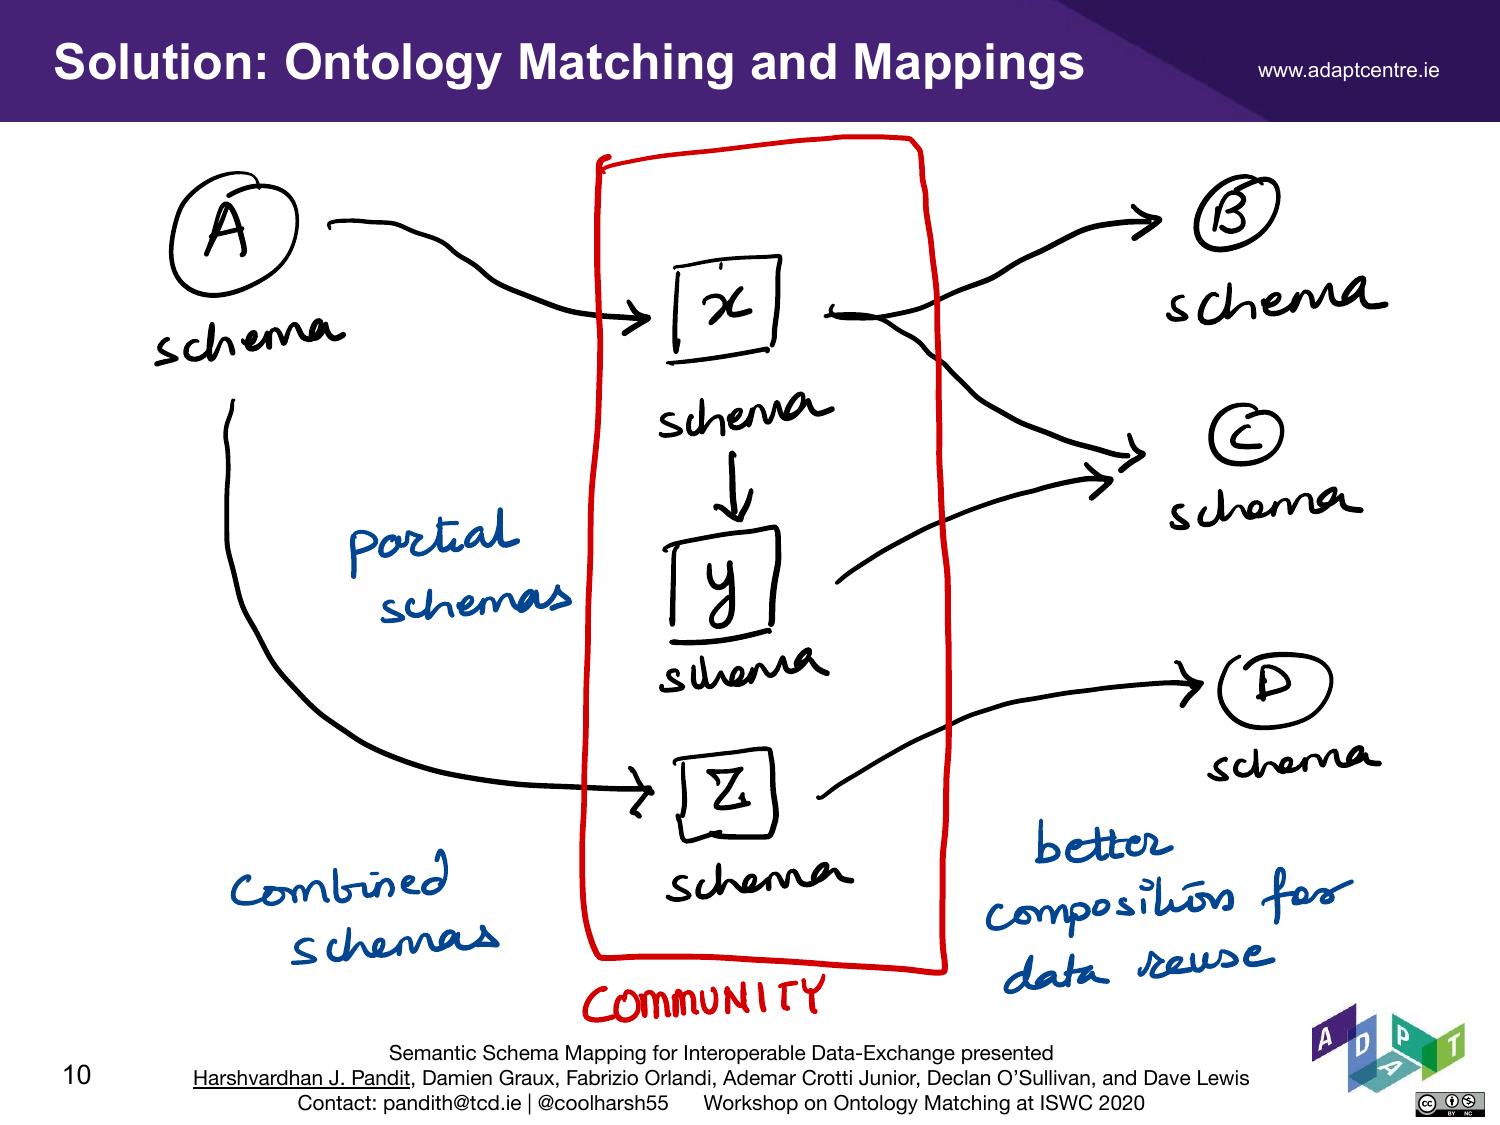 Solution: Ontology Matching and Mappings
www.adaptcentre.ie
A
schema
x
schema
y
schema
z
schema
B
schema
C
schema
D
schema
partial
schemas
combined
schemas
better
composition for
data reuse
COMMUNITY
Semantic Schema Mapping for Interoperable Data-Exchange presented
Harshvardhan J. Pandit, Damien Graux, Fabrizio Orlandi, Ademar Crotti Junior, Declan O’Sullivan, and Dave Lewis
Contact: pandith@tcd.ie | @coolharsh55 Workshop on Ontology Matching at ISWC 2020
10
ADAPT
cc
BY NC